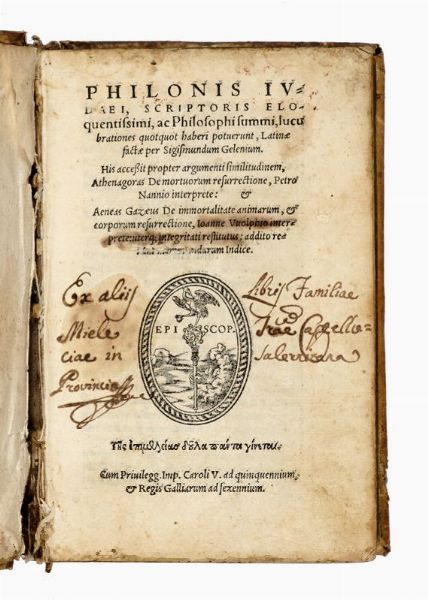 PHILONIS IV-
DAEI, SCRIPTORIS ELO-
quentissimi, ac Philosophi summi, lucu
brationes quotquot haberi potuerunt, Latinæ
factæ per Sigismundum Gelenium.
His accessit propter argumenti similitudinem,
Athenagoras De mortuorum resurrectione, Petro
Nannio interprete: &
Aeneas Gazæus De immortalitate animarum, &
corporum resurrectione, Ioanne Vuolphio inter
prete: uterq; integritati restitutus: addito re
Indice.
Ex aliis Libris Familiae
EPI SCOP.
Miele
ciae in Salernitana
Provincia
Τῆς ἐπιμελείας δοῦλα πάντα γίνεται.
Cum Privilegg. Imp. Caroli V. ad quinquennium,
& Regis Galliarum ad sexennium.